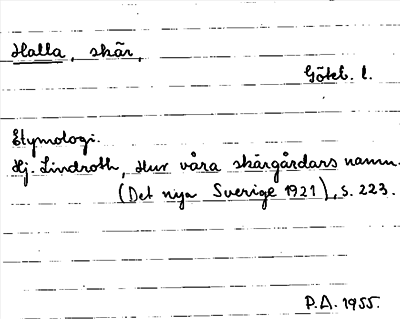 Halla, skär,
Götet. l.
Etymologi.
Hj. Lindroth, Hur våra skärgårdars namn.
(Det nya Sverige 1921), s. 223.
P.A. 1955.